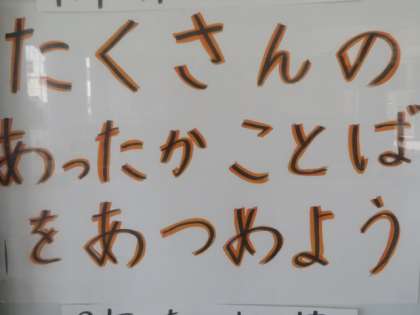 たくさんの
あったかことば
をあつめよう